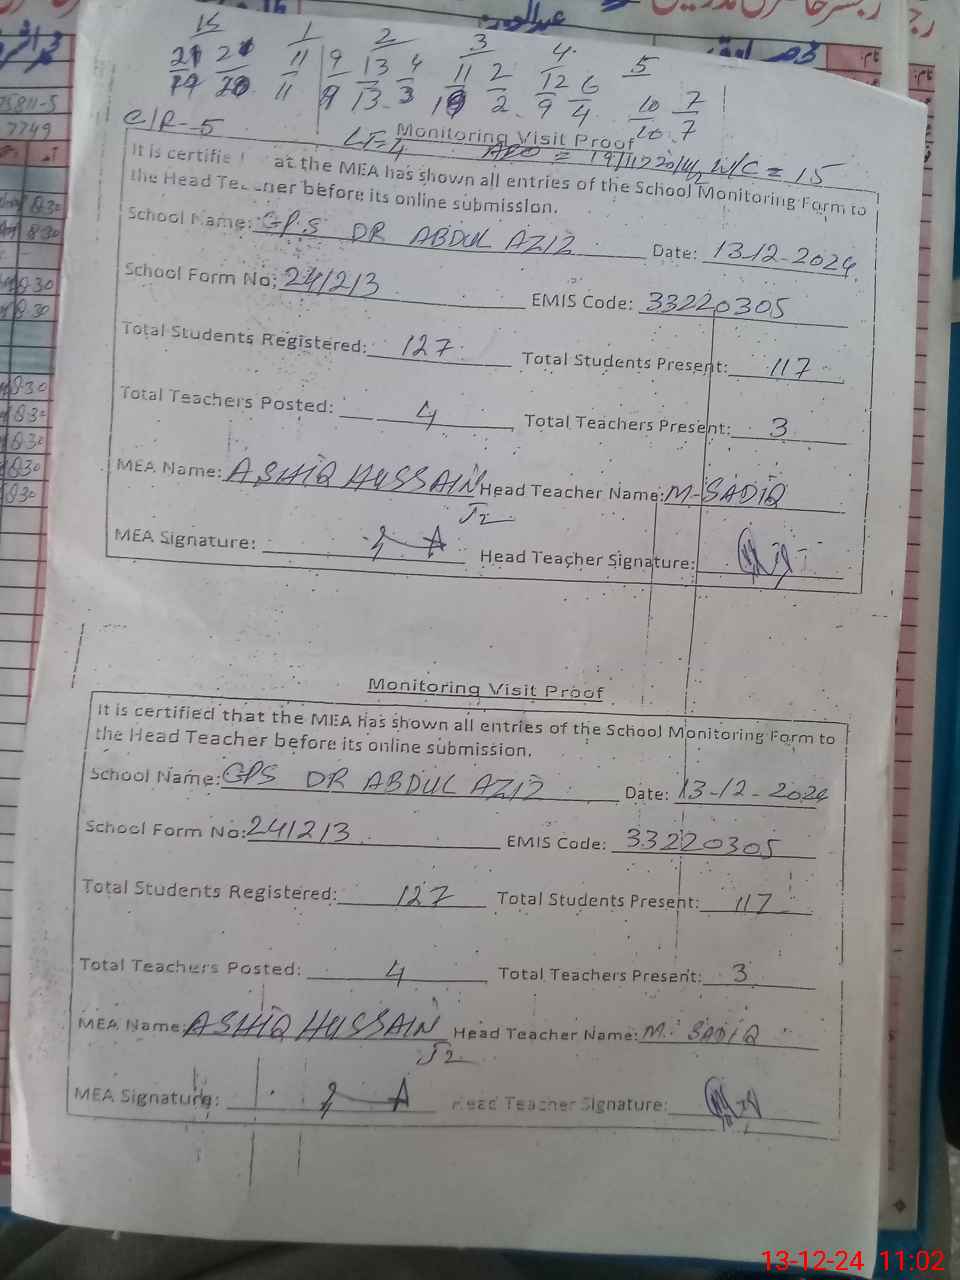 K 1 2 3 4 5
21 21 11 9 13 4 11 2 12 6 10 7
19 20 11 9 13 3 10 2 9 4 10 7
C/R-5
Monitoring Visit Proof
LF=4 AEO = W/C = 15
It is certifie at the MEA has shown all entries of the School Monitoring Form to
the Head Te ner before its online submission.
School Name: GP.S DR ABDUL AZIZ Date: 13-12-2024
School Form No: 241213 EMIS Code: 33220305
Total Students Registered: 127 Total Students Present: 117
Total Teachers Posted: 4 Total Teachers Present: 3
MEA Name: ASHIQ HUSSAIN Head Teacher Name: M-SADIQ
J2
MEA Signature: Head Teacher Signature:
Monitoring Visit Proof
It is certified that the MEA has shown all entries of the School Monitoring Form to
the Head Teacher before its online submission.
School Name: GPS DR ABDUL AZIZ Date: 13-12-2024
School Form No: 241213 EMIS Code: 33220305
Total Students Registered: 127 Total Students Present: 117
Total Teachers Posted: 4 Total Teachers Present: 3
MEA Name: ASHIQ HUSSAIN Head Teacher Name: M. SADIQ
J2
MEA Signature: Head Teacher Signature:
75811-5
7749
8.30
8.30
8.30
8.30
8.30
8.30
8.30
8.30
8.30
13-12-24 11:02